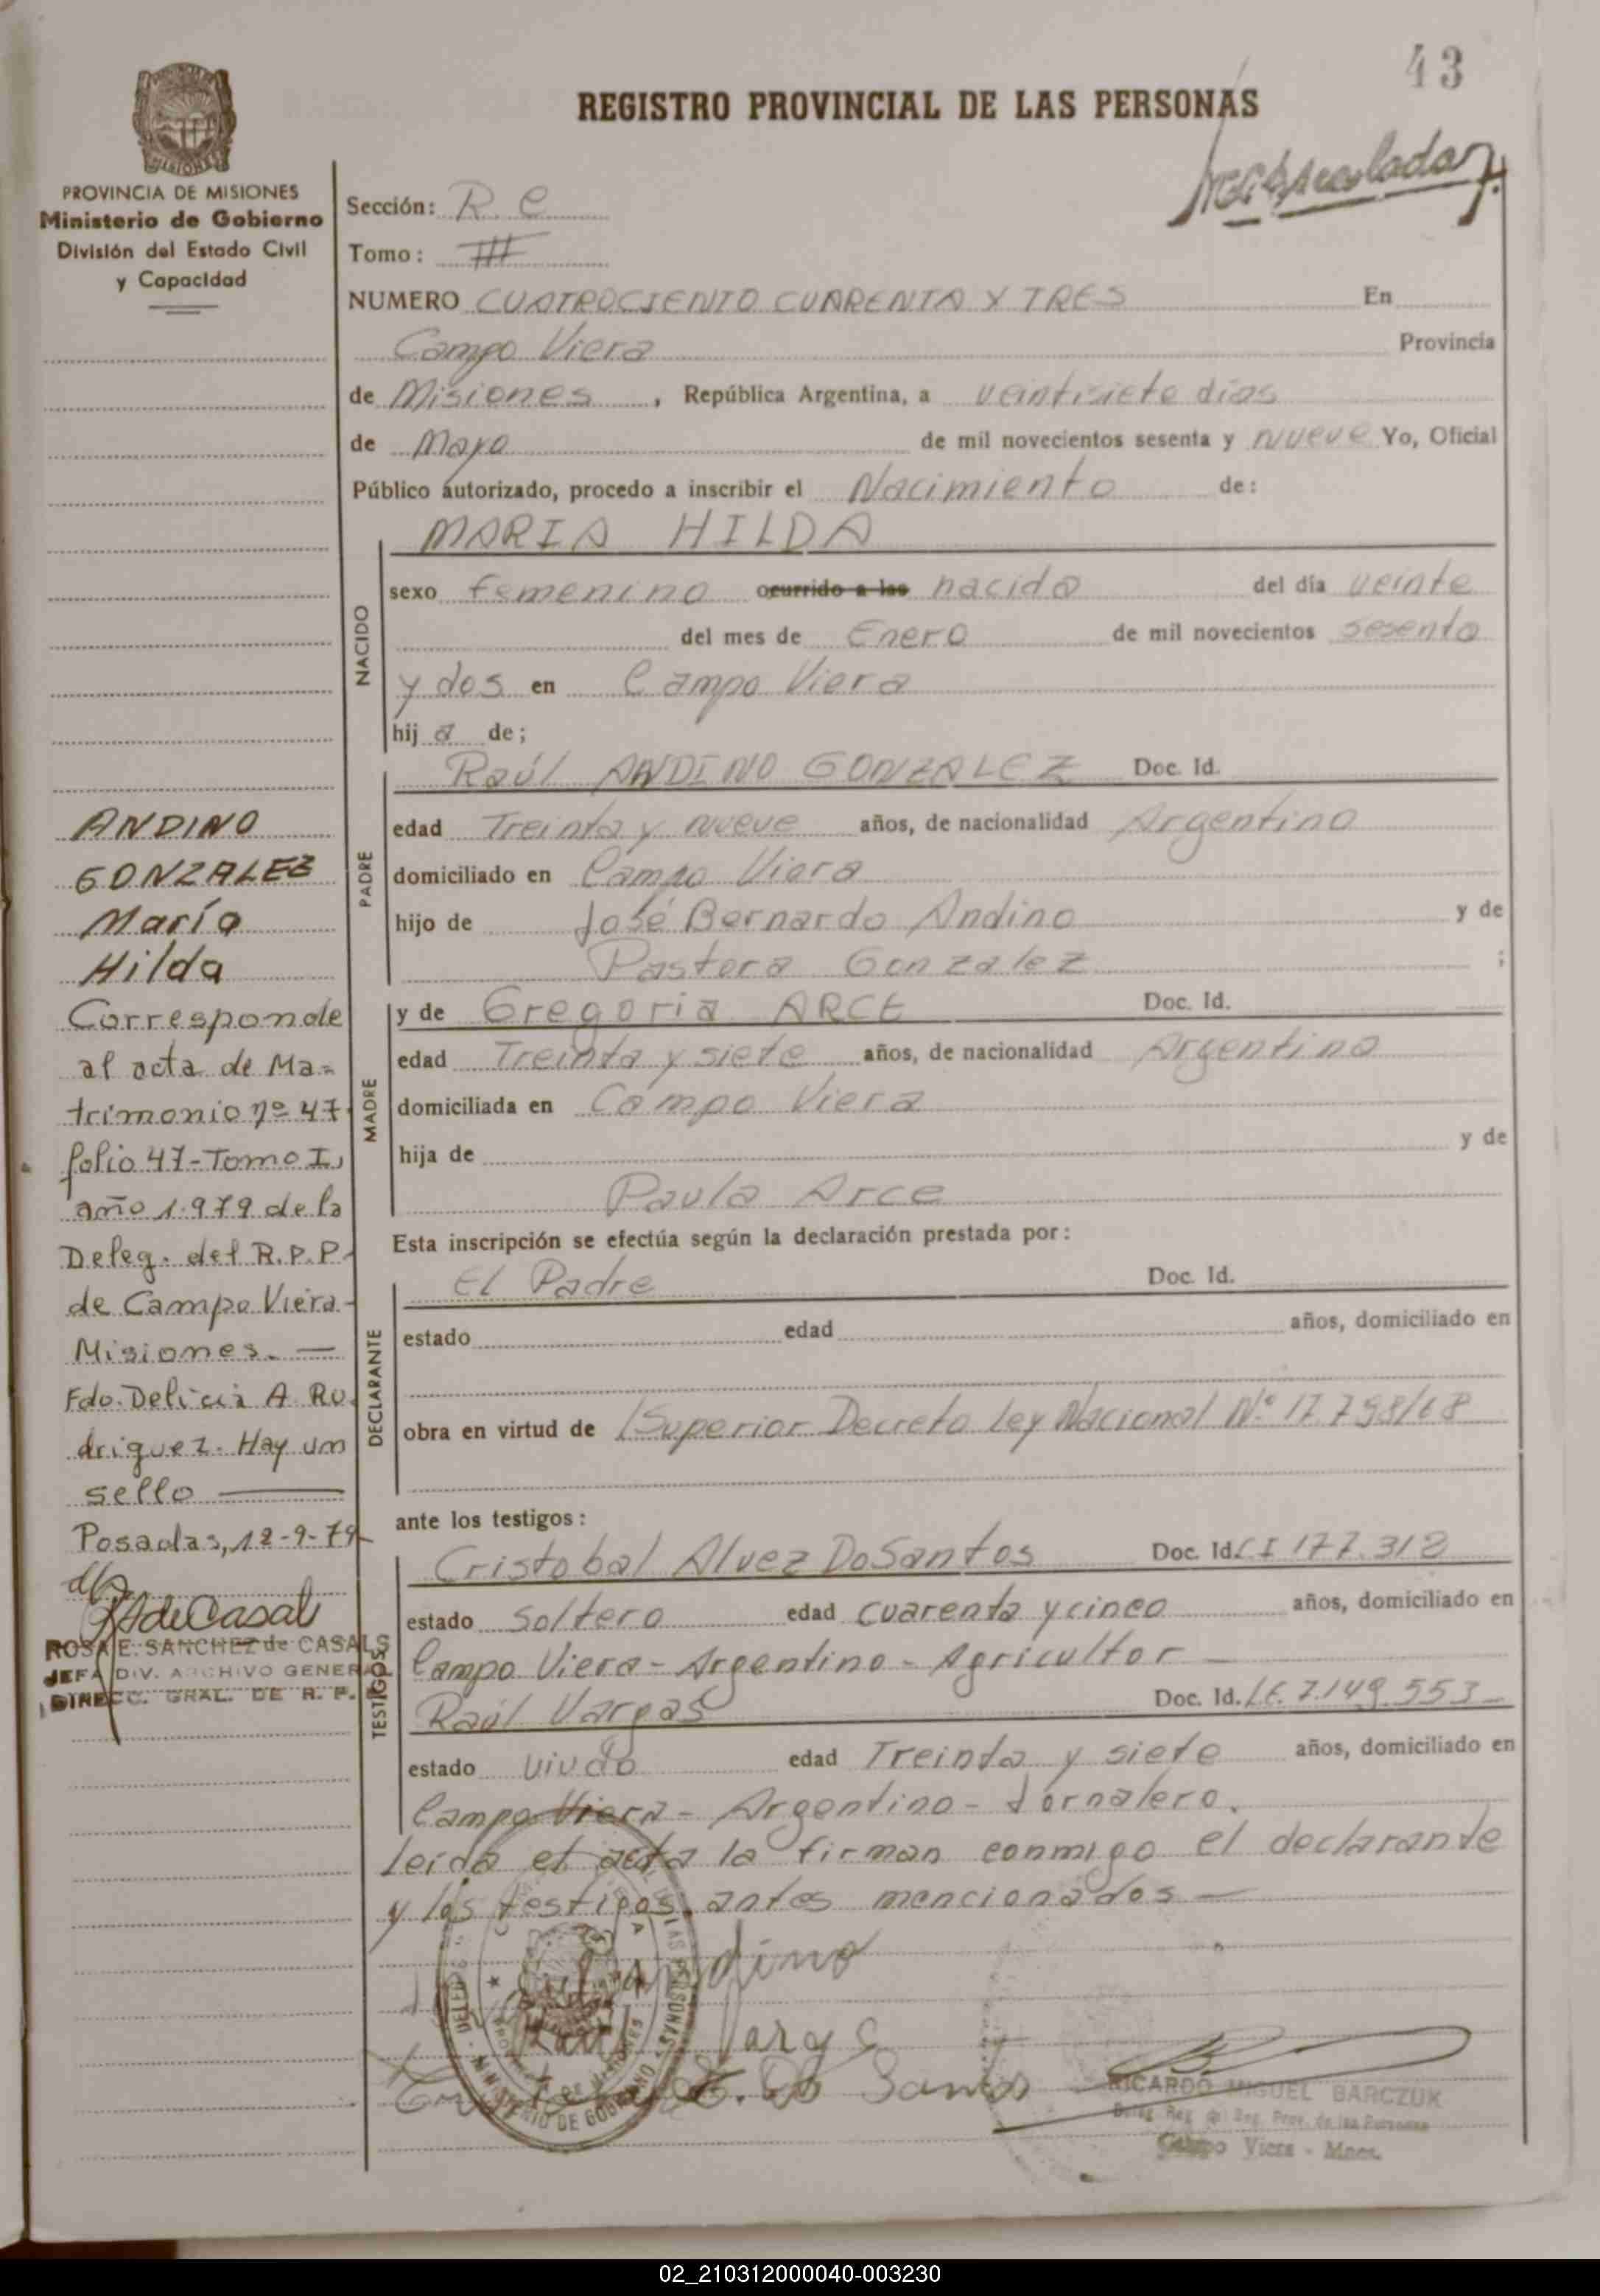 43
REGISTRO PROVINCIAL DE LAS PERSONAS
PROVINCIA DE MISIONES
Ministerio de Gobierno
División del Estado Civil
y Capacidad
Sección: R. C
Tomo: III
NUMERO CUATROCIENTO CUARENTA Y TRES En
Campo Viera Provincia
de Misiones, República Argentina, a veintisiete días
de Mayo de mil novecientos sesenta y nueve Yo, Oficial
Público autorizado, procedo a inscribir el Nacimiento de:
NACIDO
MARIA HILDA
sexo femenino ocurrido a las nacida del día veinte
del mes de Enero de mil novecientos sesenta
y dos en Campo Viera
hija de;
PADRE
Raúl ANDINO GONZALEZ Doc. Id.
edad Treinta y nueve años, de nacionalidad Argentino
domiciliado en Campo Viera
hijo de José Bernardo Andino y de
Pastora Gonzalez ;
MADRE
y de Gregoria ARCE Doc. Id.
edad Treinta y siete años, de nacionalidad Argentina
domiciliada en Campo Viera
hija de y de
Paula Arce
Esta inscripción se efectúa según la declaración prestada por:
DECLARANTE
El Padre Doc. Id.
estado edad años, domiciliado en
obra en virtud de Superior Decreto Ley Nacional Nº 17.798/68
ante los testigos:
TESTIGOS
Cristobal Alvez DoSantos Doc. Id. C I 177.312
estado soltero edad cuarenta y cinco años, domiciliado en
Campo Viera - Argentino - Agricultor
Raúl Vargas Doc. Id. L.E. 7.149.553
estado viudo edad Treinta y siete años, domiciliado en
Campo Viera - Argentino - Jornalero.
leida el acta la firman conmigo el declarante
y los testigos antes mencionados -
Andino
Raul Varga
Do Santos
RICARDO MIGUEL BARCZUK
Campo Viera - Mnes.
ANDINO
GONZALEZ
María
Hilda
Corresponde
al acta de Ma=
trimonio nº 47
folio 47 - Tomo I,
año 1.979 de la
Deleg. del R.P.P.
de Campo Viera-
Misiones. —
Fdo. Delicia A. Ro
driguez. Hay un
sello —
Posadas, 12-9-79
ROSA E. SANCHEZ de CASALS
JEFA DIV. ARCHIVO GENERAL
DIRECC. GRAL. DE R. P.
02_210312000040-003230